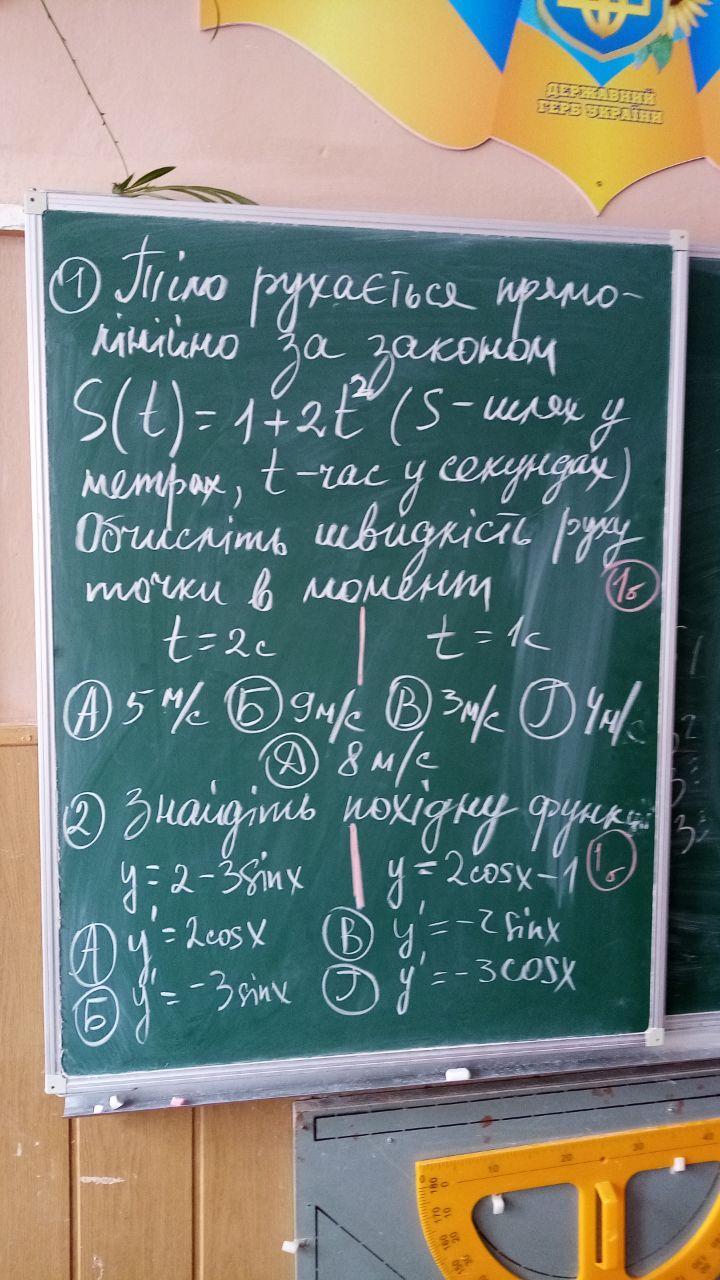 ДЕРЖАВНИЙ
ГЕРБ УКРАЇНИ
① Тіло рухається прямо-
лінійно за законом
S(t) = 1 + 2t² (S - шлях у
метрах, t - час у секундах)
Обчисліть швидкість руху
точки в момент 1б
t = 2с | t = 1с
А 5 м/с Б 9 м/с В 3 м/с Г 4 м/с
Д 8 м/с
② Знайдіть похідну функції
y = 2 - 3sinx | y = 2cosx - 1 1б
А y' = 2cosx В y' = -2sinx
Б y' = -3sinx Г y' = -3cosx
0 10 20 30 40
180 170 160 150